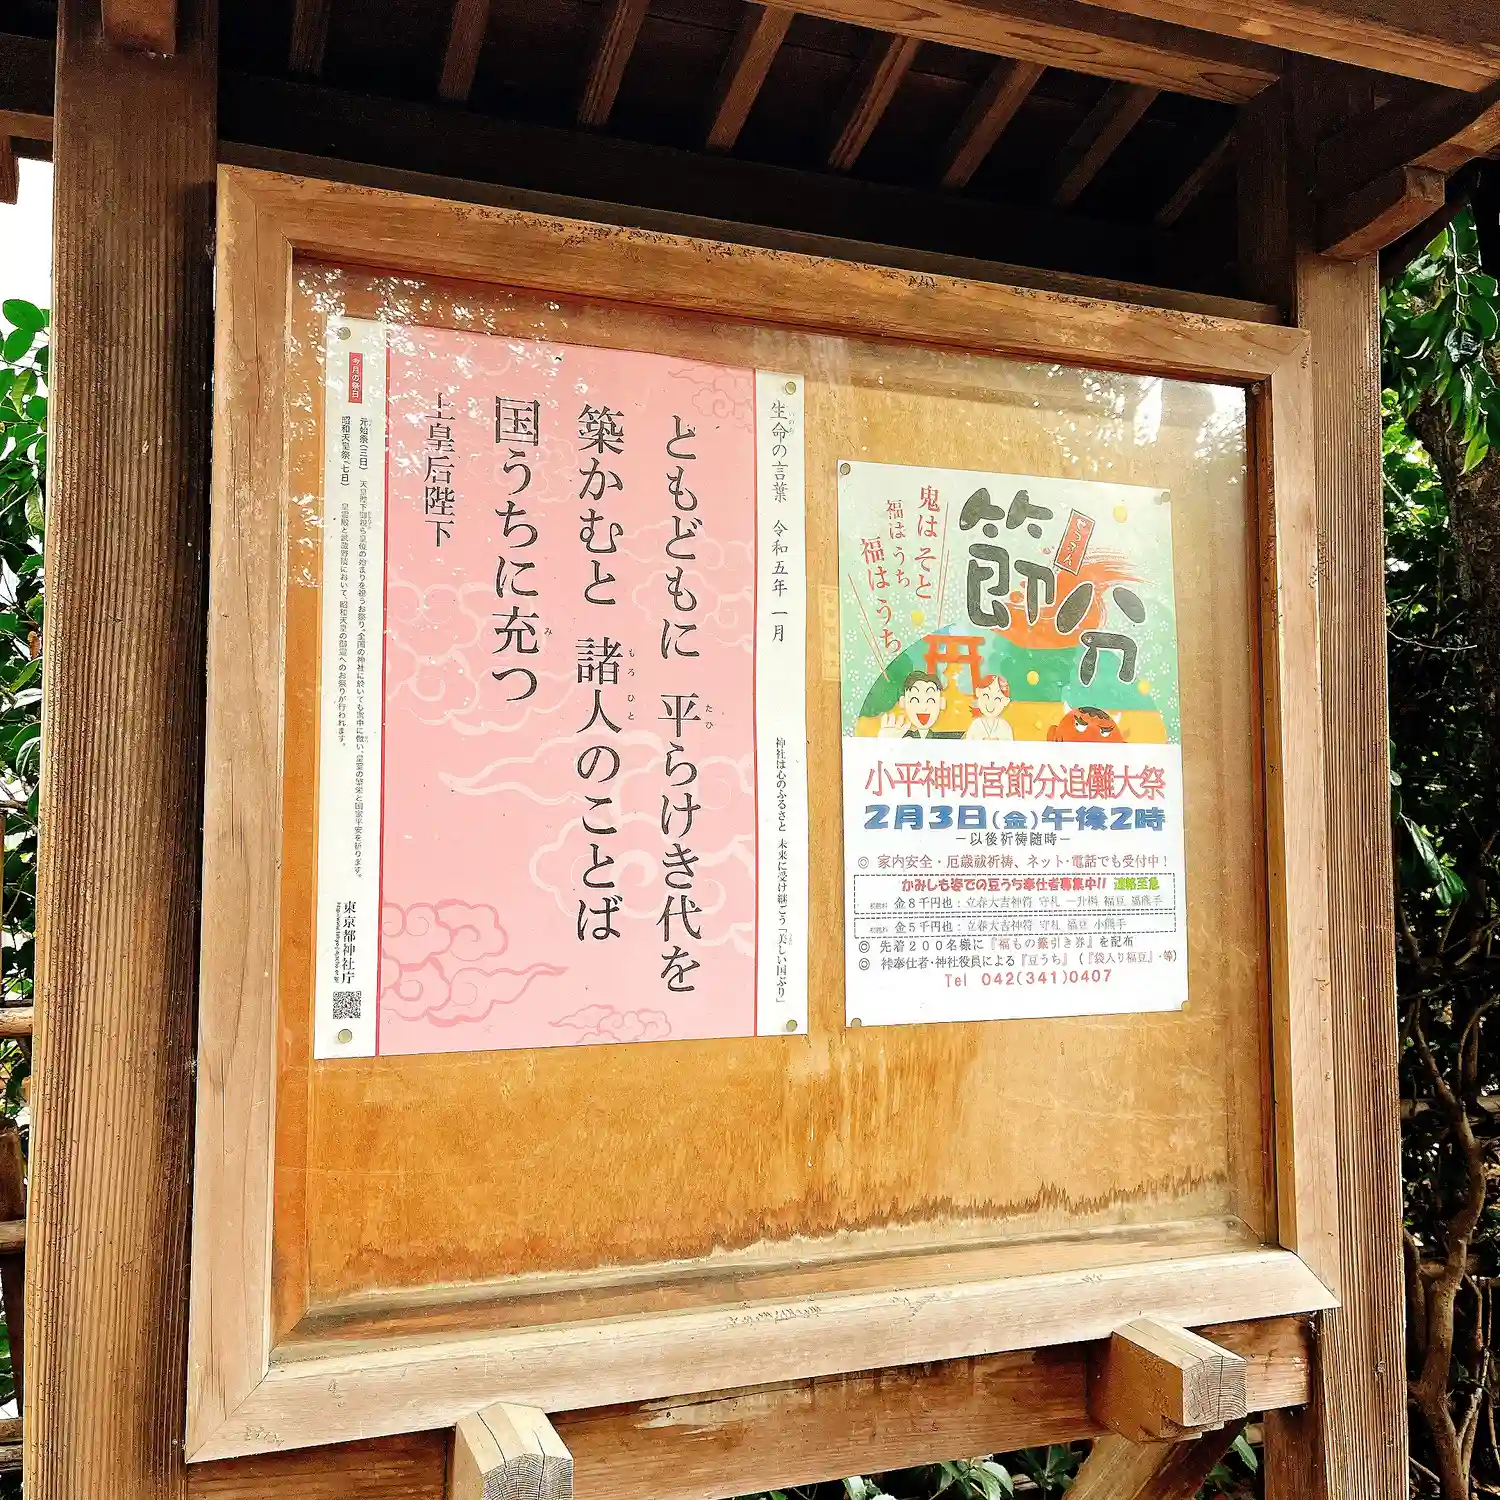 生命の言葉 令和五年 一月
神社は心のふるさと 未来に受け継ごう「美しい国ぶり」
ともどもに 平らけき代を
築かむと 諸人のことば
国うちに充つ
上皇后陛下
今月の祭日
元始祭(三日) 天皇陛下御親ら皇位の始まりを祝うお祭り。全国の神社に於いても宮中に倣い、皇室の繁栄と国家平安を祈ります。
昭和天皇祭(七日) 皇霊殿と武蔵野陵において、昭和天皇の御霊へのお祭りが行われます。
東京都神社庁
節分
せつぶん
鬼はそと
福はうち
福はうち
小平神明宮節分追儺大祭
2月3日(金)午後2時
−以後祈祷随時−
◎ 家内安全・厄歳祓祈祷、ネット・電話でも受付中!
かみしも姿での豆うち奉仕者募集中!! 連絡至急
初穂料 金8千円也:立春大吉神符 守札 一升桝 福豆 福熊手
初穂料 金5千円也:立春大吉神符 守札 福豆 小熊手
◎ 先着200名様に『福もの籤引き券』を配布
◎ 裃奉仕者・神社役員による『豆うち』(『袋入り福豆』・等)
Tel 042(341)0407